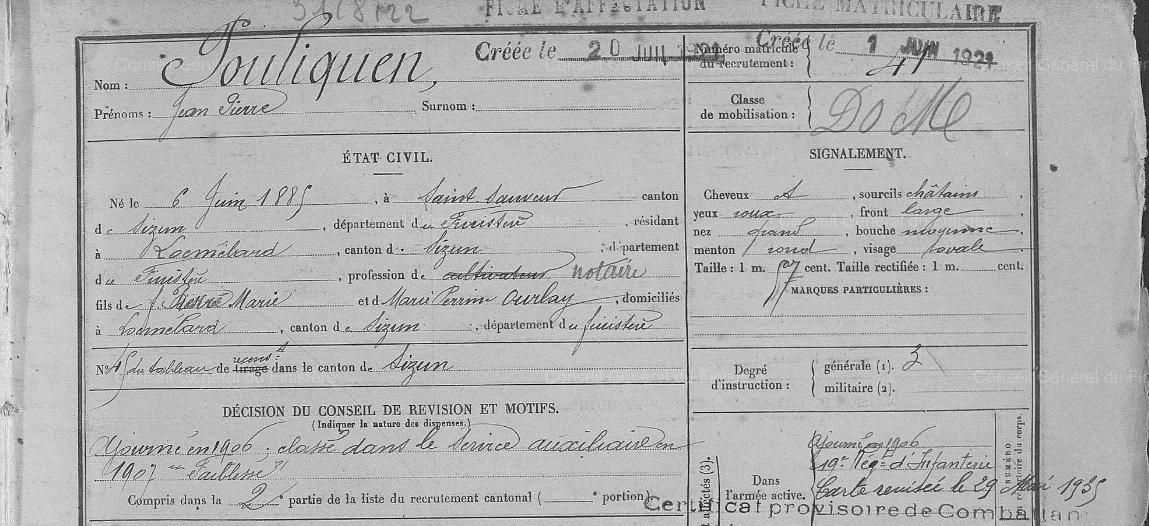 31/8/22
FICHE D'AFFECTATION
FICHE MATRICULAIRE
Créée le 20 JUIN 1921
Créée le 1 JUIN 1921
Nom : Pouliquen,
Prénoms : Jean Pierre Surnom :
Numéro matricule du recrutement : 41
Classe de mobilisation : Do Me
ÉTAT CIVIL.
Né le 6 Juin 1885, à Saint Sauveur canton
de Sizun, département du Finistère, résidant
à Locmélard, canton de Sizun, département
du Finistère, profession de cultivateur notaire
fils de Marie et de Marie Perrine, domiciliés
à Locmélard, canton de Sizun, département du Finistère
No 45 du tableau de recenst tirage dans le canton de Sizun
DÉCISION DU CONSEIL DE REVISION ET MOTIFS.
(Indiquer la nature des dispenses.)
Ajourné en 1906, classé dans le service auxiliaire en
1907 "Faiblesse"
Compris dans la 2e partie de la liste du recrutement cantonal ( e portion)
SIGNALEMENT.
Cheveux et, sourcils châtains
yeux roux, front large
nez grand, bouche moyenne
menton rond, visage ovale
Taille : 1 m. 57 cent. Taille rectifiée : 1 m. cent.
MARQUES PARTICULIÈRES :
Degré d'instruction : générale (1). 3
militaire (2).
Dans l'armée active.
Ajourné en 1906
19e Régt d'Infanterie
Carte remisée le 29 Mai 1935
Certificat provisoire de Combattan
NUMÉRO
répertoire du corps.
affectés (3).
Conseil Général du Fi